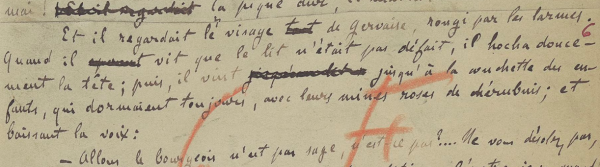 mai! la pique dure,
Et il regardait le visage de Gervaise, rougi par les larmes.
Quand il vit que le lit n'était pas défait, il hocha douce-
ment la tête; puis, il vint jusqu'à la couchette des en-
fants, qui dormaient toujours, avec leurs mines roses de chérubins; et
baissant la voix:
— Allons le bourgeois n'est pas sage, n'est-ce pas?.... Ne vous désolez pas,